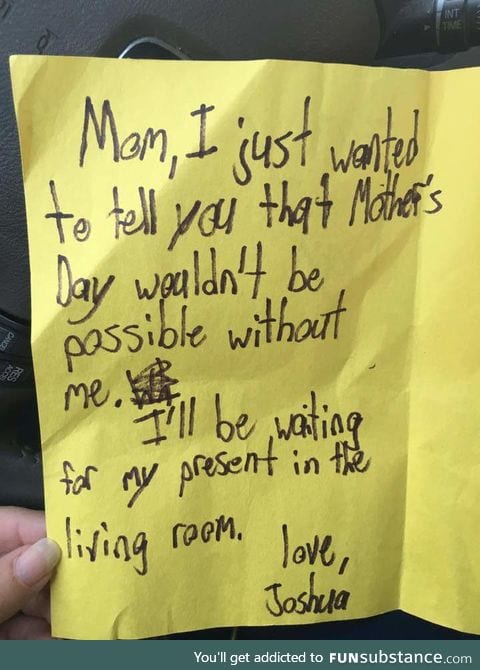 Mom, I just wanted
to tell you that Mother's
Day wouldn't be
possible without
me.
I'll be waiting
for my present in the
living room.
love,
Joshua
INT
TIME
You'll get addicted to FUNsubstance.com